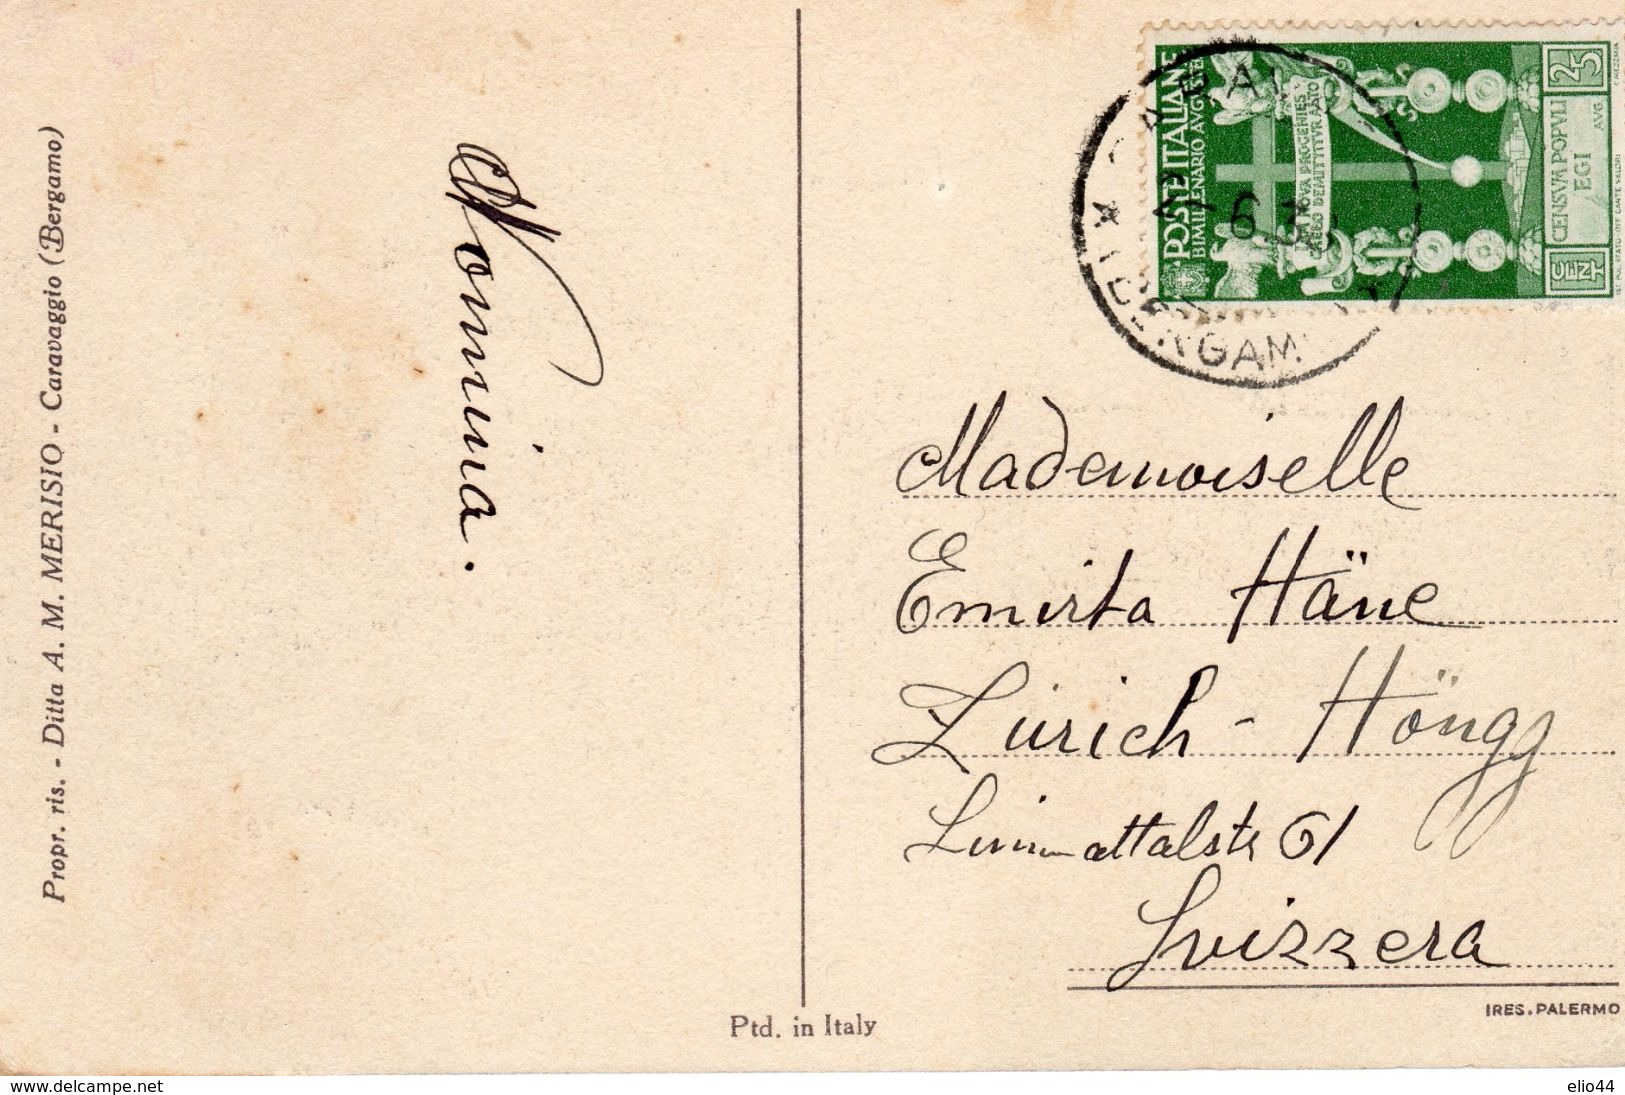 Propr. ris. - Ditta A. M. MERISIO - Caravaggio (Bergamo)
Nonnina.
POSTE ITALIANE
BIMILLENARIO AVGVSTEO
IAM NOVA PROGENIES
CAELO DEMITTITVR ALTO
CENSVM POPVLI
EGI
AVG
CENT
25
6.3
BERGAM
Mademoiselle
Emirta Häne
Zürich - Höngg
Limmattalstr 61
Svizzera
IRES. PALERMO
Ptd. in Italy
www.delcampe.net
elio44